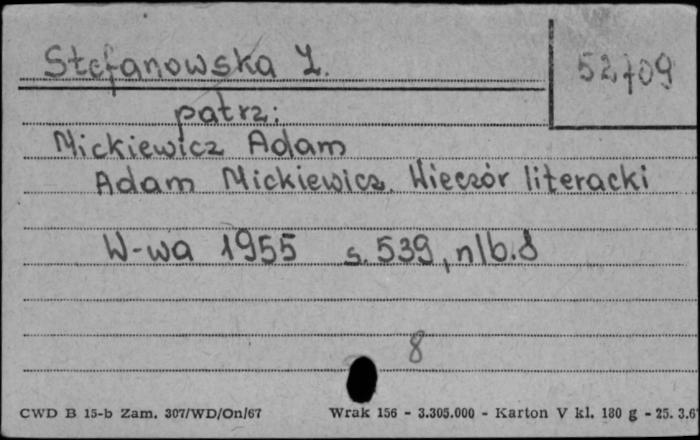 Stefanowska Z.
52709
patrz:
Mickiewicz Adam
Adam Mickiewicz. Wieczór literacki
W-wa 1955 s. 539, nlb. 8
8
CWD B 15-b Zam. 307/WD/On/67 Wrak 156 - 3.305.000 - Karton V kl. 180 g - 25. 3.6